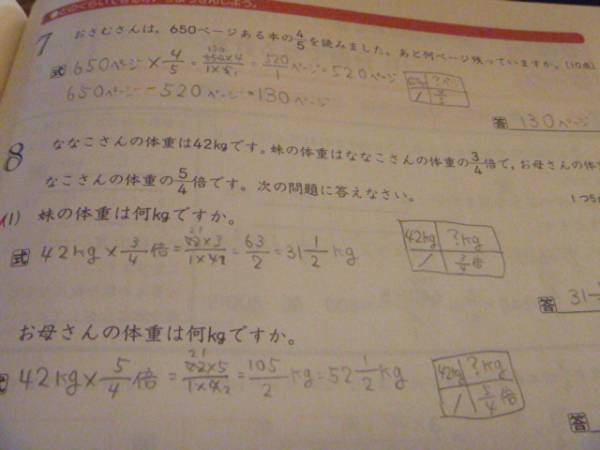 このくらいできるかな ちょうせんしよう。
7 おさむさんは，650ページある本の4/5を読みました。あと何ページ残っていますか。(10点)
式 650ページ×4/5=130 650×4/1×5 1=520/1ページ=520ページ
?ペ
1 4/5
650ページ-520ページ=130ページ
答 130ページ
8 ななこさんの体重は42kgです。妹の体重はななこさんの体重の3/4倍で，お母さんの体
なこさんの体重の5/4倍です。次の問題に答えなさい。
1つ5
(1) 妹の体重は何kgですか。
式 42kg×3/4倍=21 42×3/1×4 2=63/2=31 1/2 kg
42kg ?kg
1 3/4倍
答 31
お母さんの体重は何kgですか。
42kg×5/4倍=21 42×5/1×4 2=105/2kg=52 1/2 kg
42kg ?kg
1 5/4倍
答